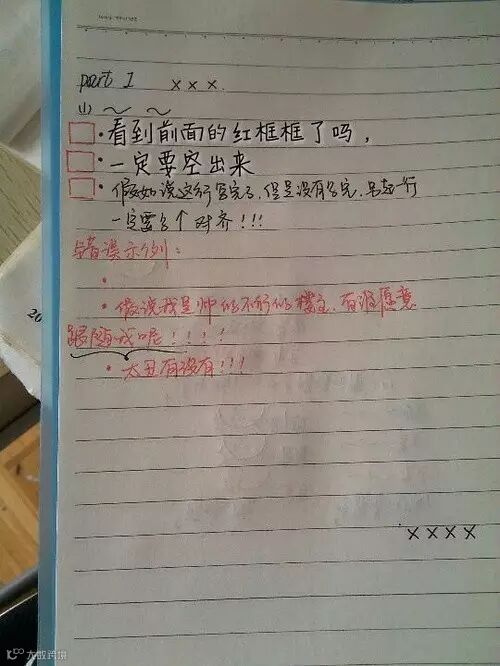 part 1 ×××.
(1) ～ ～
□·看到前面的红框框了吗，
□·一定要空出来
□·假如说这行写完了，但是没有写完，另起一行
一定要写个对齐！！！
错误示例：
·
·假说我是帅的不行的楼主，有谁愿意
跟随我呢！！！！
·太丑有没有！！！
××××
大数跨境